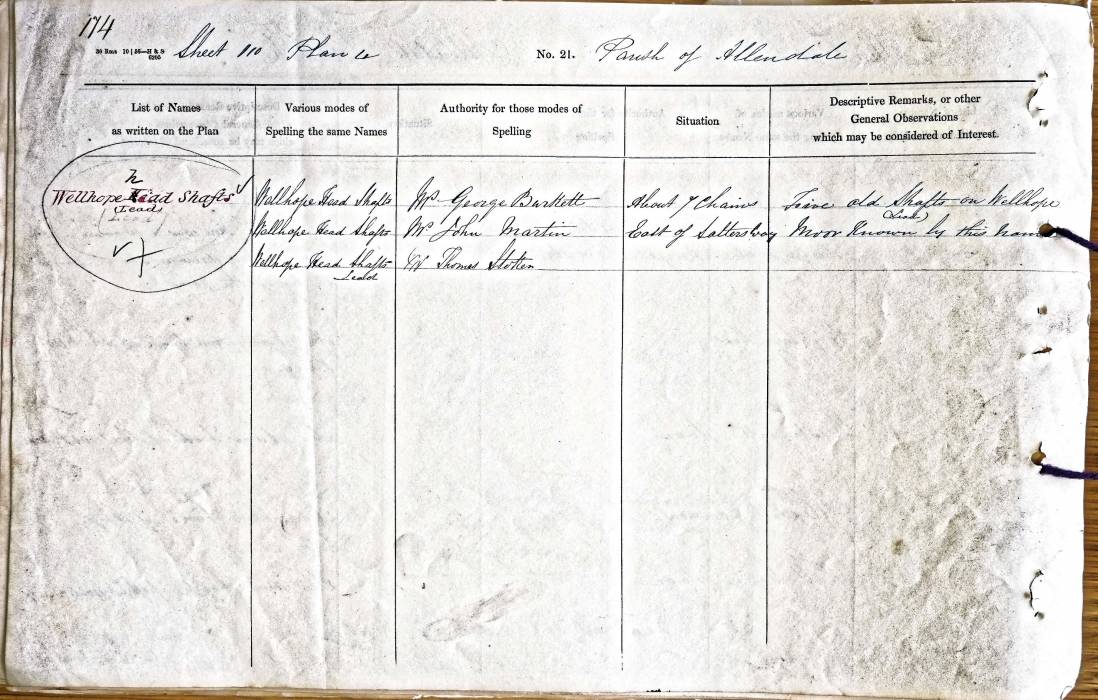 174
Sheet 110 Plan 4 No. 21. Parish of Allendale
List of Names as written on the Plan
Various modes of Spelling the same Names
Authority for those modes of Spelling
Situation
Descriptive Remarks, or other General Observations which may be considered of Interest.
h
Wellhope Head Shafts
(Lead)
(Lead)
Wellhope Head Shafts
Wellhope Head Shafts
Wellhope Head Shafts
Lead
Mr. George Burkett
Mr. John Martin
Thomas
About 7 Chains
East of Salters Way
Five old Shafts on Wellhope
(Lead)
Moor Known by this name